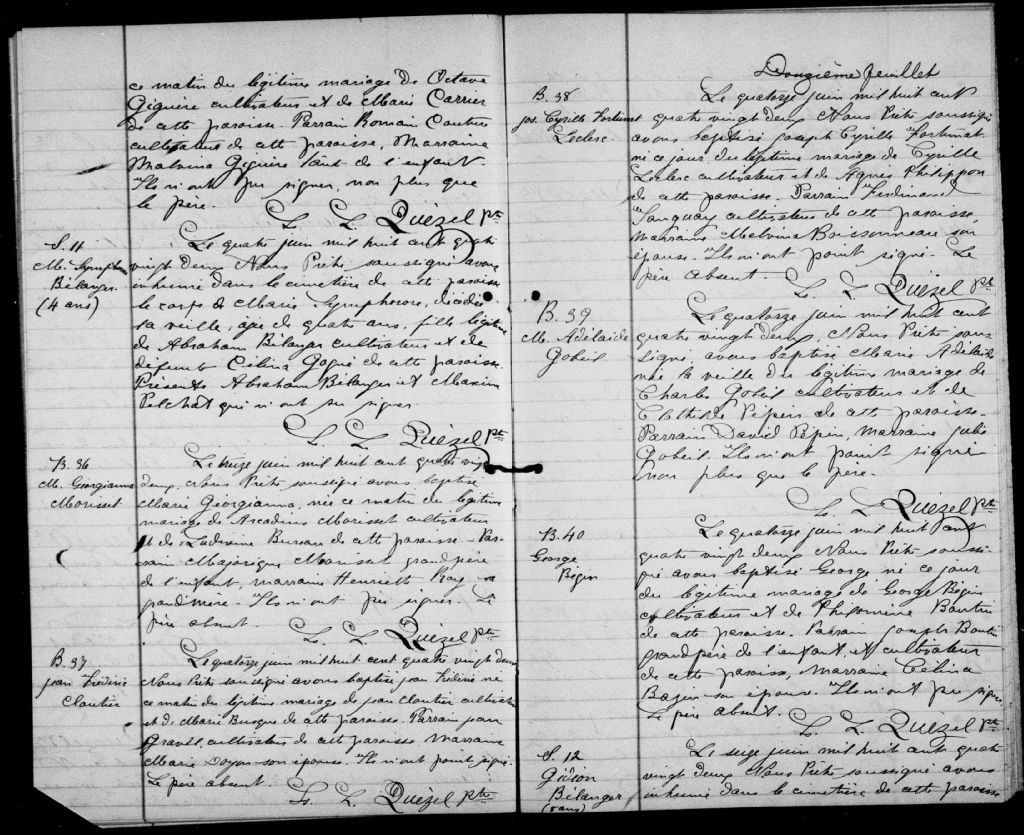 ce matin du légitime mariage de Octave
Giguère cultivateur et de Marie Carrier
de cette paroisse. Parrain Romain Cloutier
cultivateur de cette paroisse, Marraine
Malvina Giguère tante de l'enfant
Ils n'ont pu signer, non plus que
le père.
L. L. Quézel Ptre
S. 11
M. Symphor
Bélanger
(4 ans)
Le quatre juin mil huit cent quatre
vingt deux Nous Prêtre soussigné avons
inhumé dans le cimetière de cette paroisse
le corps de Marie Symphorose, décédée
la veille, âgée de quatre ans, fille légitime
de Abraham Bélanger cultivateur et de
défunte Célina Gagné de cette paroisse.
Présents Abraham Bélanger et Maxim
Pelchat qui n'ont su signer
L. L. Quézel Ptre
B. 36
M. Georgianna
Morisset
Le treize juin mil huit cent quatre vingt
deux, Nous Prêtre soussigné avons baptisé
Marie Georgianna, née ce matin du légitime
mariage de Arcadius Morisset cultivateur
et de Ludivine Bureau de cette paroisse. Par-
rain Majorique Morisset grand père
de l'enfant, marraine Henriett Roy sa
grand'mère. Ils n'ont pu signer. Le
père absent.
L. L. Quézel Ptre
B. 37
Jean Frédéric
Cloutier
Le quatorze juin mil huit cent quatre vingt deux
Nous Prêtre soussigné avons baptisé Jean Frédéric né
ce matin du légitime mariage de Jean Cloutier cultivateur
et de Marie Busque de cette paroisse. Parrain Jean
Gravel, cultivateur de cette paroisse Marraine
Marie Doyon son épouse. Ils n'ont point signé.
Le père absent.
L. L. Quézel Ptre
Douzième feuillet
B. 38
Jos. Cyrille Fortunat
Leclerc
Le quatorze juin mil huit cent
quatre vingt deux Nous Prêtre soussigné
avons baptisé Joseph Cyrille Fortunat
né ce jour du légitime mariage de Cyrille
Leclerc cultivateur et de Agnès Philippon
de cette paroisse. Parrain Ferdinand
Tanguay cultivateur de cette paroisse
Marraine Melvina Boissonneau son
épouse. Ils n'ont point signé. Le
père absent.
L. L. Quézel Ptre
B. 39
M. Adélaïde
Gobeil
Le quatorze juin mil huit cent
quatre vingt deux, Nous Prêtre sous-
signé avons baptisé Marie Adélaïde
née la veille du légitime mariage de
Charles Gobeil cultivateur et de
Clothilde Pépin de cette paroisse.
Parrain David Pépin, Marraine Julie
Gobeil. Ils n'ont point signé
non plus que le père.
L. L. Quézel Ptre
B. 40
George
Bégin
Le quatorze juin mil huit cent
quatre vingt deux Nous Prêtre soussi-
gné avons baptisé George né ce jour
du légitime mariage de George Bégin
cultivateur et de Philomène Boutin
de cette paroisse. Parrain Joseph Boutin
grand père de l'enfant et cultivateur
de cette paroisse, Marraine Célina
Bazin son épouse. Ils n'ont pu signer
Le père absent.
L. L. Quézel Ptre
S. 12
Gédéon
Bélanger
Le seize juin mil huit cent quatre
vingt deux Nous Prêtre soussigné avons
inhumé dans le cimetière de cette paroisse